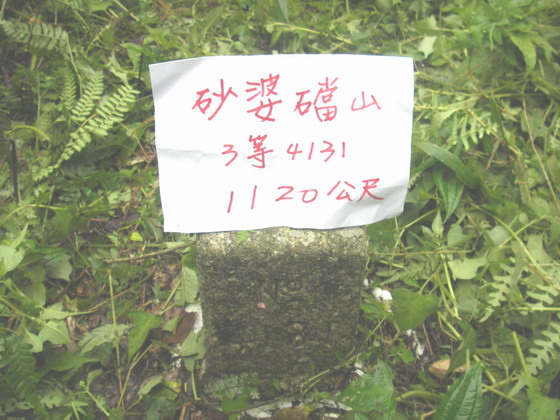 砂婆礑山
3等4131
1120公尺